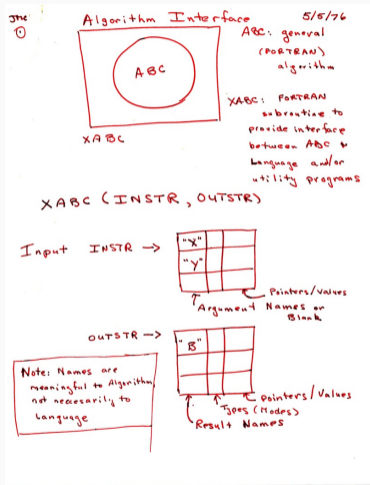 JMC
Algorithm Interface
5/5/76
1
ABC
XABC
ABC: general
(FORTRAN)
algorithm
XABC: FORTRAN
subroutine to
provide interface
between ABC &
Language and/or
utility programs
XABC (INSTR, OUTSTR)
Input INSTR →
"X"
"Y"
Pointers/Values
Argument Names or
Blank
OUTSTR →
"B"
Pointers/Values
Types (Modes)
Result Names
Note: Names are
meaningful to Algorithm,
not necessarily to
Language